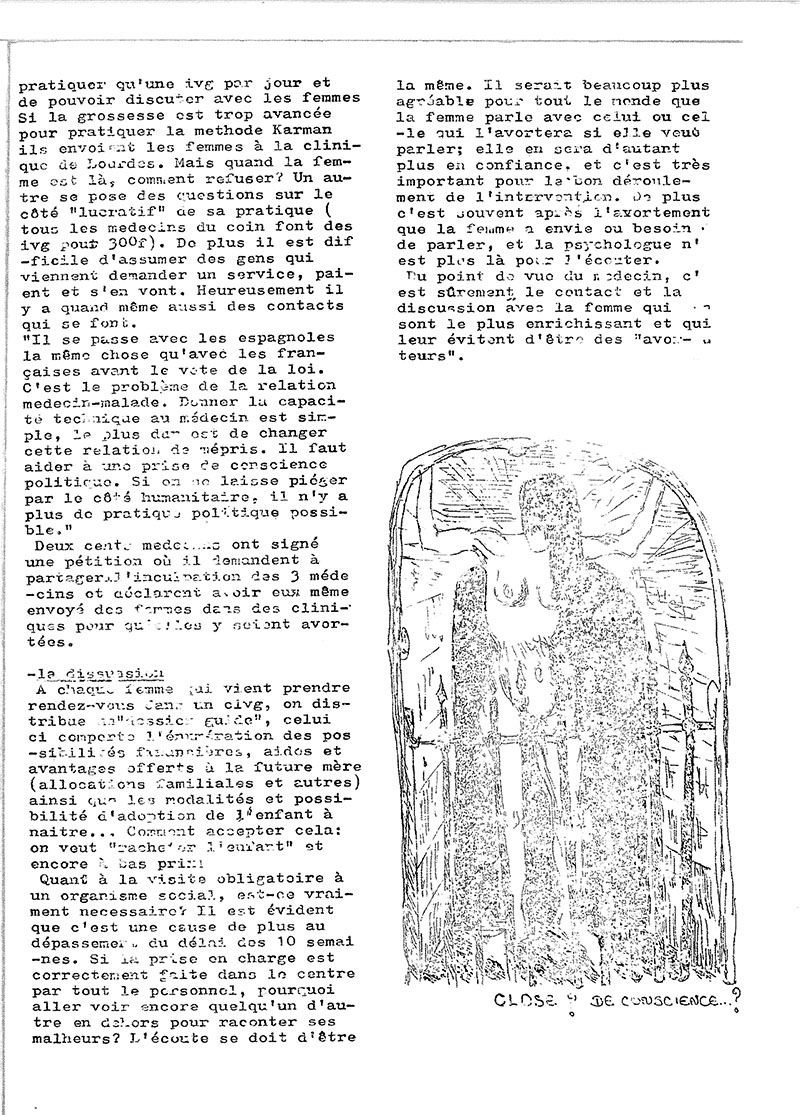 pratiquer qu'une ivg par jour et
de pouvoir discuter avec les femmes
Si la grossesse est trop avancée
pour pratiquer la methode Karman
ils envoient les femmes à la clini-
que de Lourdes. Mais quand la fem-
me est là, comment refuser? Un au-
tre se pose des questions sur le
côté "lucratif" de sa pratique (
tous les medecins du coin font des
ivg pour 300f). De plus il est dif
-ficile d'assumer des gens qui
viennent demander un service, pai-
ent et s'en vont. Heureusement il
y a quand même aussi des contacts
qui se font.
"Il se passe avec les espagnoles
la même chose qu'avec les fran-
çaises avant le vote de la loi.
C'est le problème de la relation
medecin-malade. Donner la capaci-
té technique au médecin est sim-
ple, le plus dur est de changer
cette relation de mépris. Il faut
aider à une prise de conscience
politique. Si on se laisse piéger
par le côté humanitaire, il n'y a
plus de pratique politique possi-
ble."
Deux cents medecins ont signé
une pétition où il demandent à
partager l'inculpation des 3 méde
-cins et déclarent avoir eux même
envoyé des femmes dans des clini-
ques pour qu'elles y soient avor-
tées.
-la discussion
A chaque femme qui vient prendre
rendez-vous dans un civg, on dis-
tribue un "dossier guide", celui
ci comporte l'énumération des pos
-sibilités financières, aides et
avantages offerts à la future mère
(allocations familiales et autres)
ainsi que les modalités et possi-
bilité d'adoption de l'enfant à
naitre... Comment accepter cela:
on veut "racheter l'enfant" et
encore à bas prix!
Quant à la visite obligatoire à
un organisme social, est-ce vrai-
ment necessaire? Il est évident
que c'est une cause de plus au
dépassement du délai des 10 semai
-nes. Si la prise en charge est
correctement faite dans le centre
par tout le personnel, pourquoi
aller voir encore quelqu'un d'au-
tre en dehors pour raconter ses
malheurs? L'écoute se doit d'être
la même. Il serait beaucoup plus
agréable pour tout le monde que
la femme parle avec celui ou cel
-le qui l'avortera si elle veut
parler; elle en sera d'autant
plus en confiance, et c'est très
important pour le bon déroule-
ment de l'intervention. De plus
c'est souvent après l'avortement
que la femme a envie ou besoin
de parler, et la psychologue n'
est plus là pour l'écouter.
Du point de vue du medecin, c'
est sûrement le contact et la
discussion avec la femme qui
sont le plus enrichissant et qui
leur évitent d'être des "avor-
teurs".
CLOSE ? DE CONSCIENCE...?